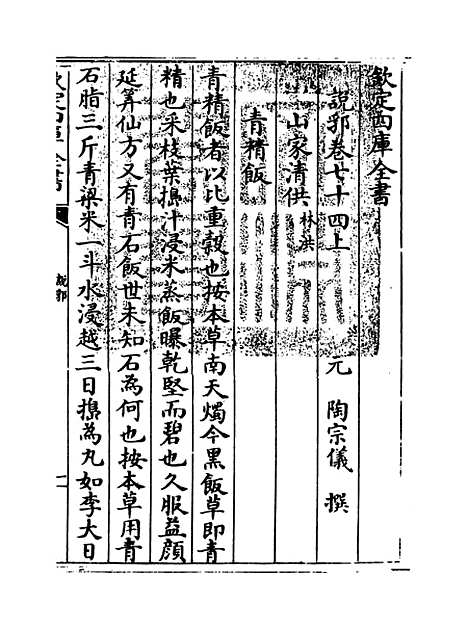 欽定四庫全書
說郛卷七十四上
元 陶宗儀 撰
山家清供 林洪
青精飯
青精飯者以比重穀也按本草南天燭今黑飯草即青
精也采枝葉搗汁浸米蒸飯曝乾堅而碧也久服益顔
延筭仙方又有青石飯世未知石為何也按本草用青
石脂三斤青粱米一斗水浸越三日搗為丸如李大日
欽定四庫全書
說郛
一